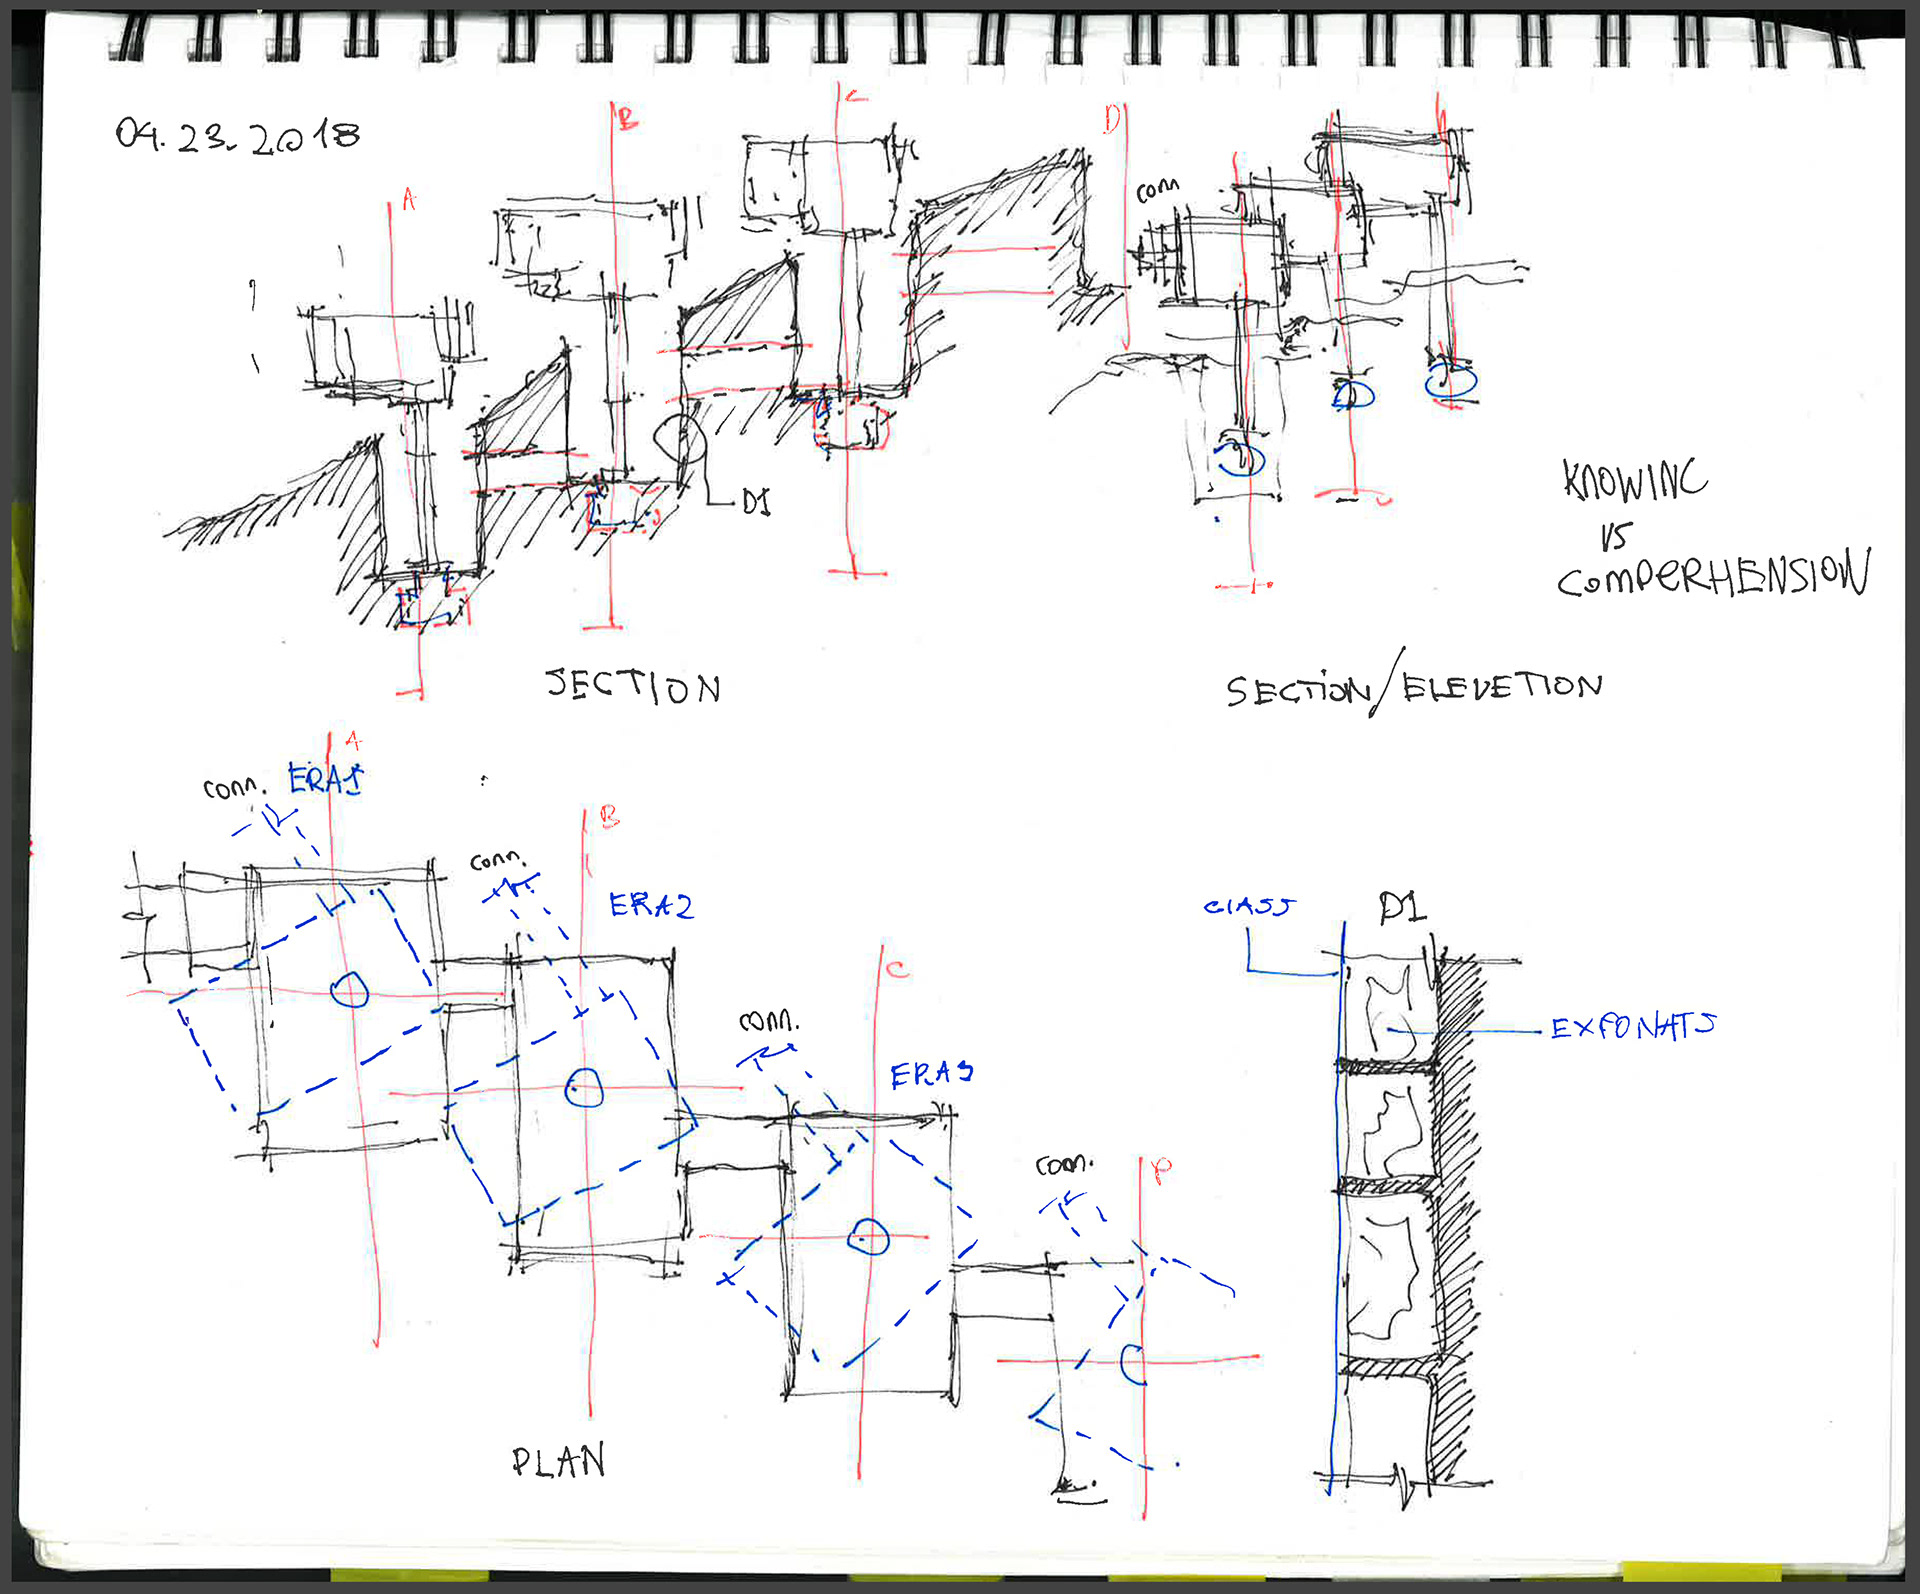 04.23.2018
A
B
C
D
conn
D1
KNOWING
VS
COMPERHENSION
SECTION
SECTION/ELEVETION
A
conn.
ERA1
B
conn.
ERA2
C
conn.
ERA3
conn.
GLASS
D1
EXFONATS
PLAN